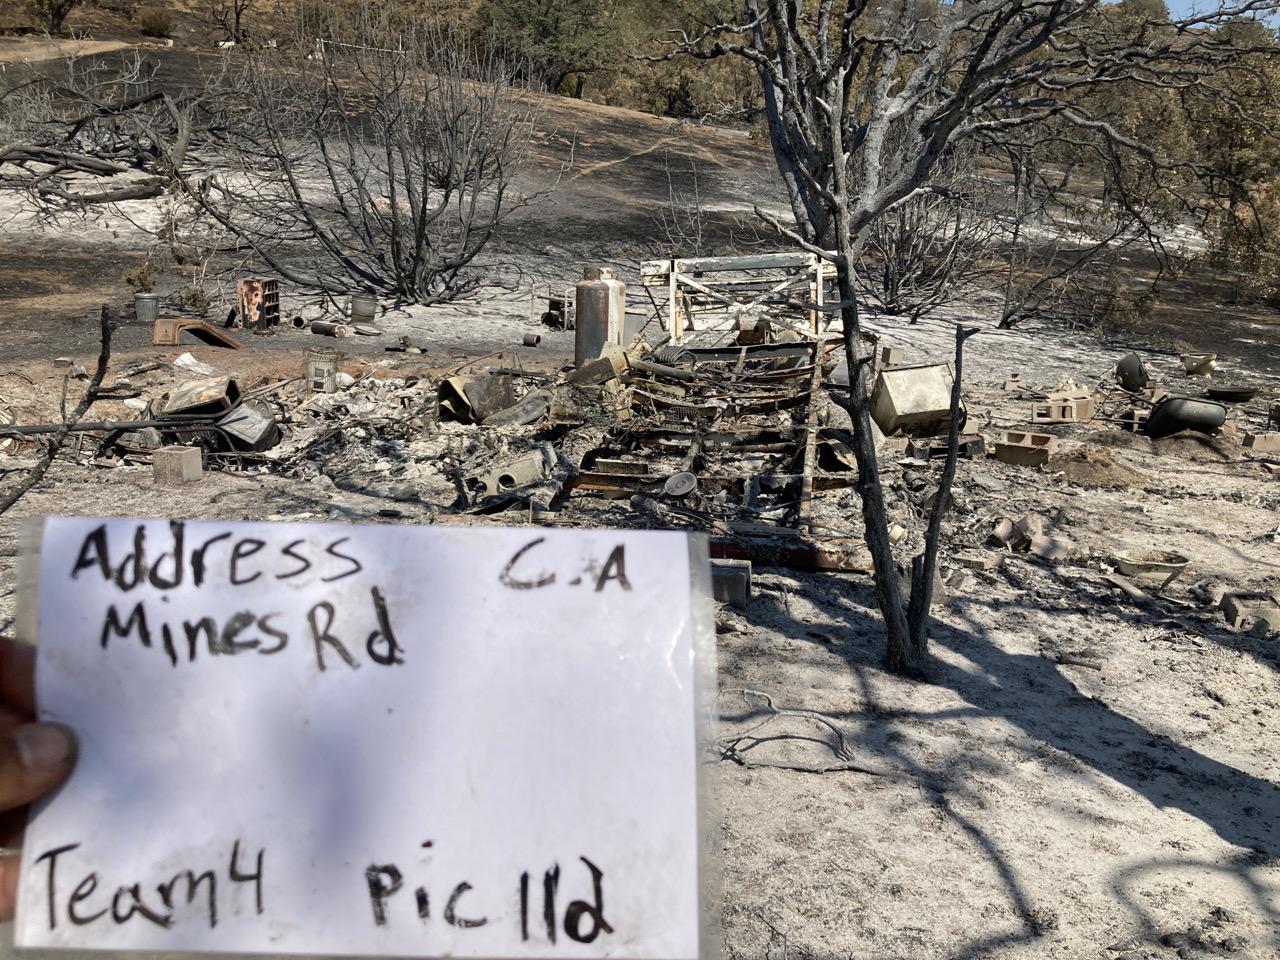 Address C.A
Mines Rd
Team 4 Pic 112